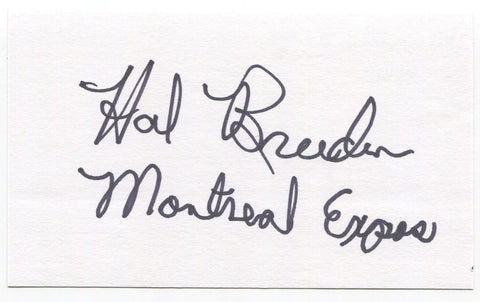 Hal Breeden
Montreal Expos